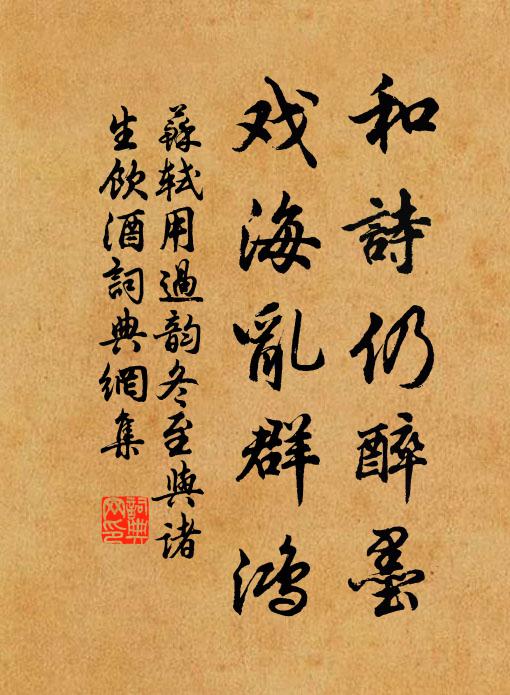 和詩仍醉墨
戏海亂群鴻
蘇軾用過韵冬至與诸
生飲酒詞典網集
詞典
网印